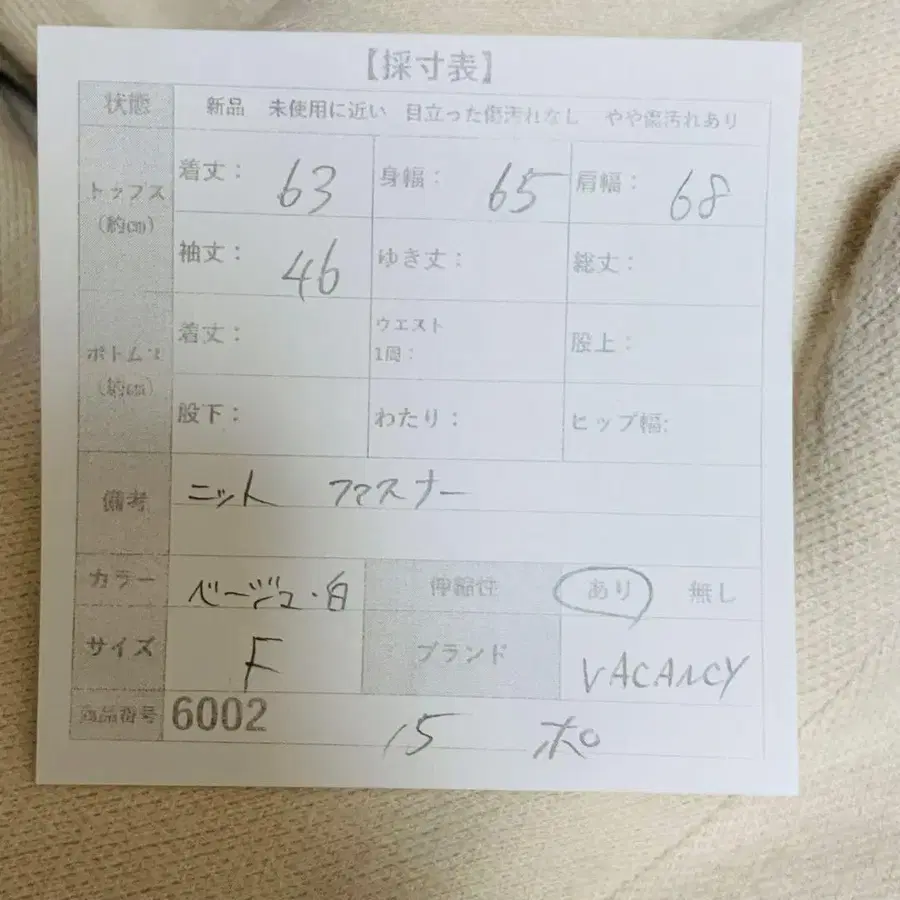 【採寸表】
状態 新品 未使用に近い 目立った傷汚れなし やや傷汚れあり
トップス(約cm) 着丈: 63 身幅: 65 肩幅: 68
袖丈: 46 ゆき丈: 総丈:
ボトムス(約cm) 着丈: ウエスト1周: 股上:
股下: わたり: ヒップ幅:
備考 ニット ファスナー
カラー ベージュ・白 伸縮性 あり 無し
サイズ F ブランド VACANCY
商品番号 6002 15 ポ